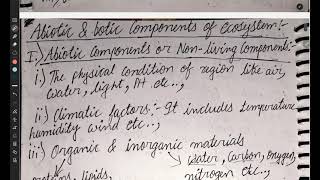 Abiotic & botic Components of ecosystem:-
I.) Abiotic Components or Non-living Component:-
i) The physical condition of region like air,
water, light, PH etc..,
ii) Climatic factors:- It includes temperature
humidity wind etc..,
iii) Organic & inorganic materials
water, Carbon, Oxygen,
nitrogen etc..,
proteins, lipids,